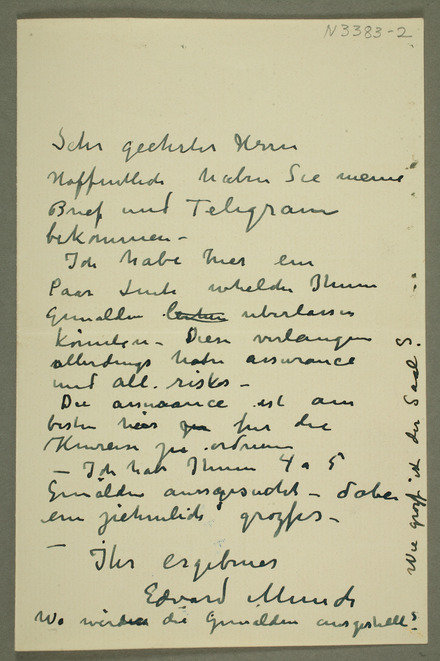 N 3383-2
Sehr geehrter Herrn
Hoffentlich haben Sie meine
Brief und Telegram
bekommen –
Ich habe hier ein
Paar Leute whelche Ihnen
Gemälden überlassen
könnten – Diese verlangen
allerdings hohe assurance
und all. riskos –
Die assurance ist am
besten hier für die
zu ordnen
– Ich habe Ihnen 4 a 5
Gemälden ausgesucht – dabei
ein ziehmlich grozses –
– Ihr ergebenes
Edvard Munch
Wo werden die Gemälden ausgestellt?
Wie grozs ist der Saal?